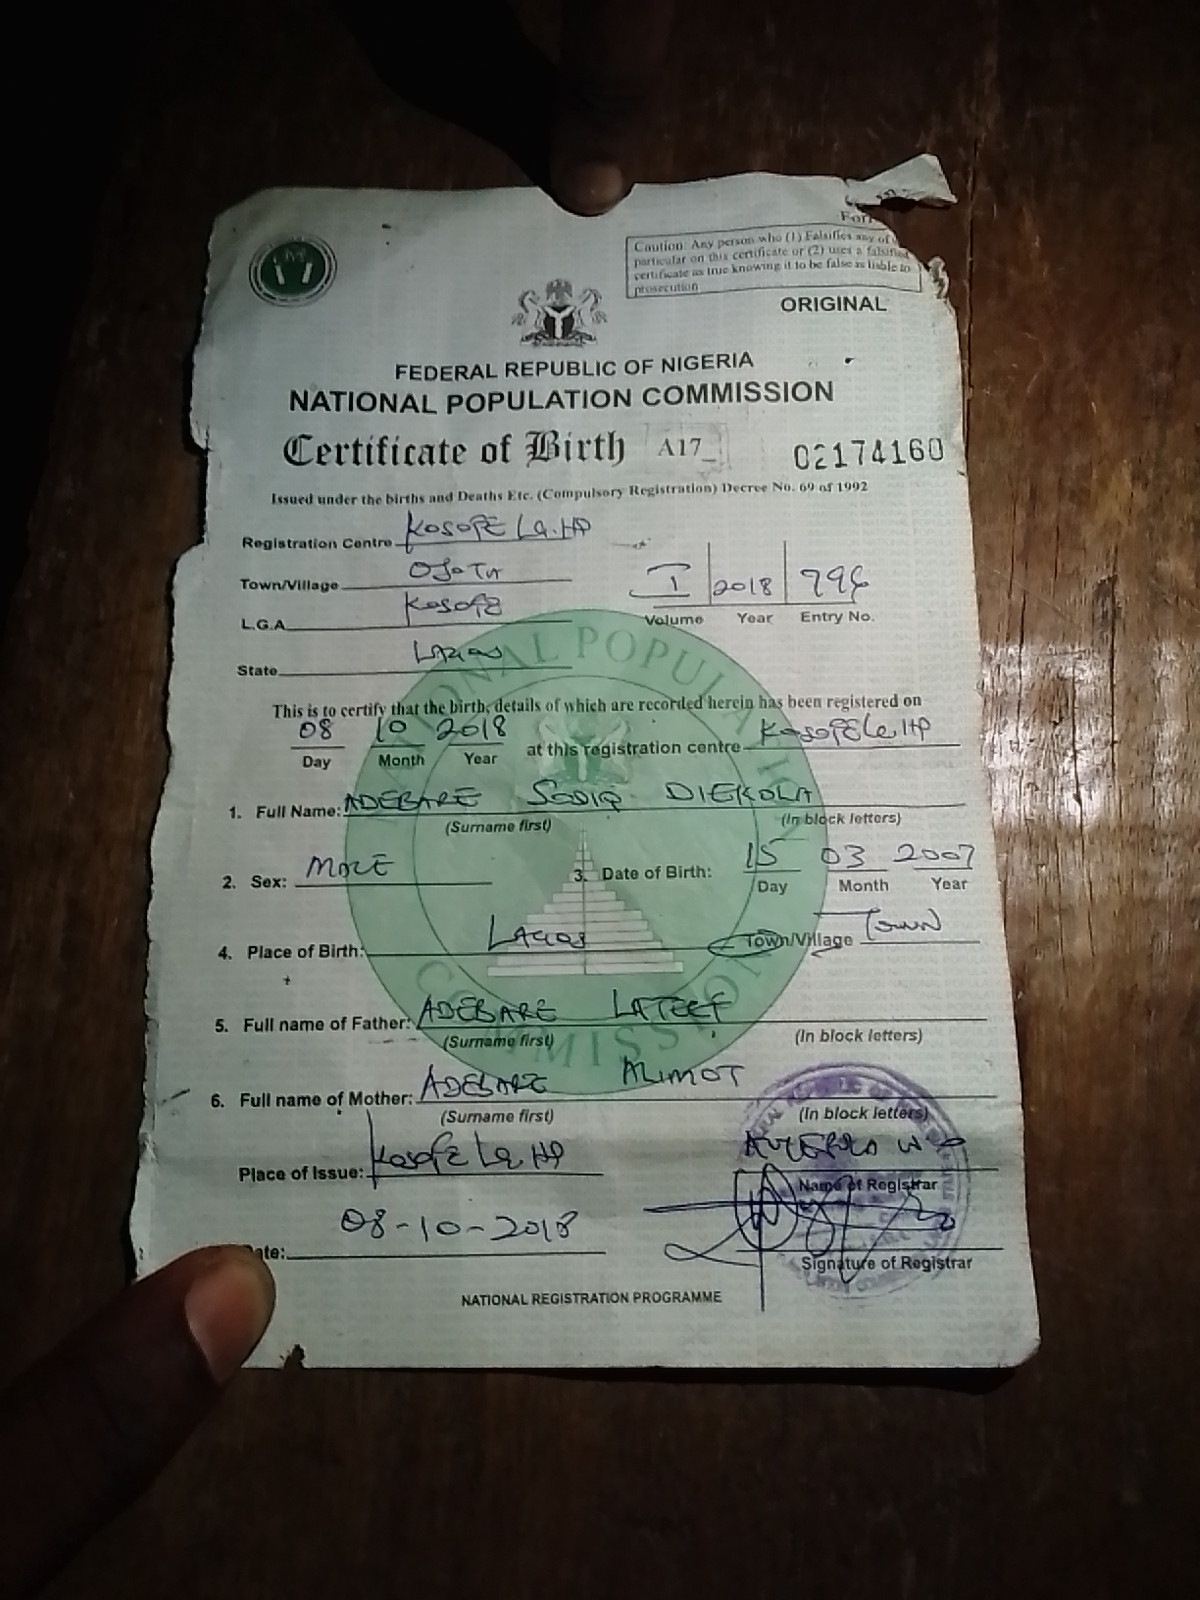 For
Caution: Any person who (1) Falsifies any of
particular on this certificate or (2) uses a falsified
certificate as true knowing it to be false is liable to
prosecution
ORIGINAL
FEDERAL REPUBLIC OF NIGERIA
NATIONAL POPULATION COMMISSION
Certificate of Birth A17_ 02174160
Issued under the births and Deaths Etc. (Compulsory Registration) Decree No. 69 of 1992
Registration Centre KOSOFE LG. HP
Town/Village OJOTA
I 2018 796
L.G.A KOSOFE
Volume Year Entry No.
State LAGOS
This is to certify that the birth, details of which are recorded herein has been registered on
08 10 2018 at this registration centre KOSOFE LG HP
Day Month Year
1. Full Name: ADEBARE SODIQ DIEKOLA
(Surname first) (In block letters)
2. Sex: MALE 3. Date of Birth: 15 03 2007
Day Month Year
4. Place of Birth: LAGOS Town/Village TOWN
5. Full name of Father: ADEBARE LATEEF
(Surname first) (In block letters)
6. Full name of Mother: ADEBARE ALIMOT
(Surname first) (In block letters)
Place of Issue: KOSOFE LG HP
Name of Registrar
ate: 08-10-2018
Signature of Registrar
NATIONAL REGISTRATION PROGRAMME
NATIONAL POPULATION COMMISSION